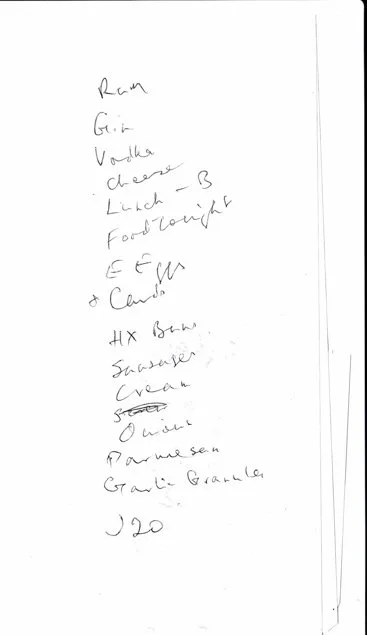 Rum
Gin
Vodka
Cheese
Lunch - B
Food tonight
E Eggs
* Cards
HX Buns
Sausages
Cream
Onions
Parmesan
Garlic Granules
J20